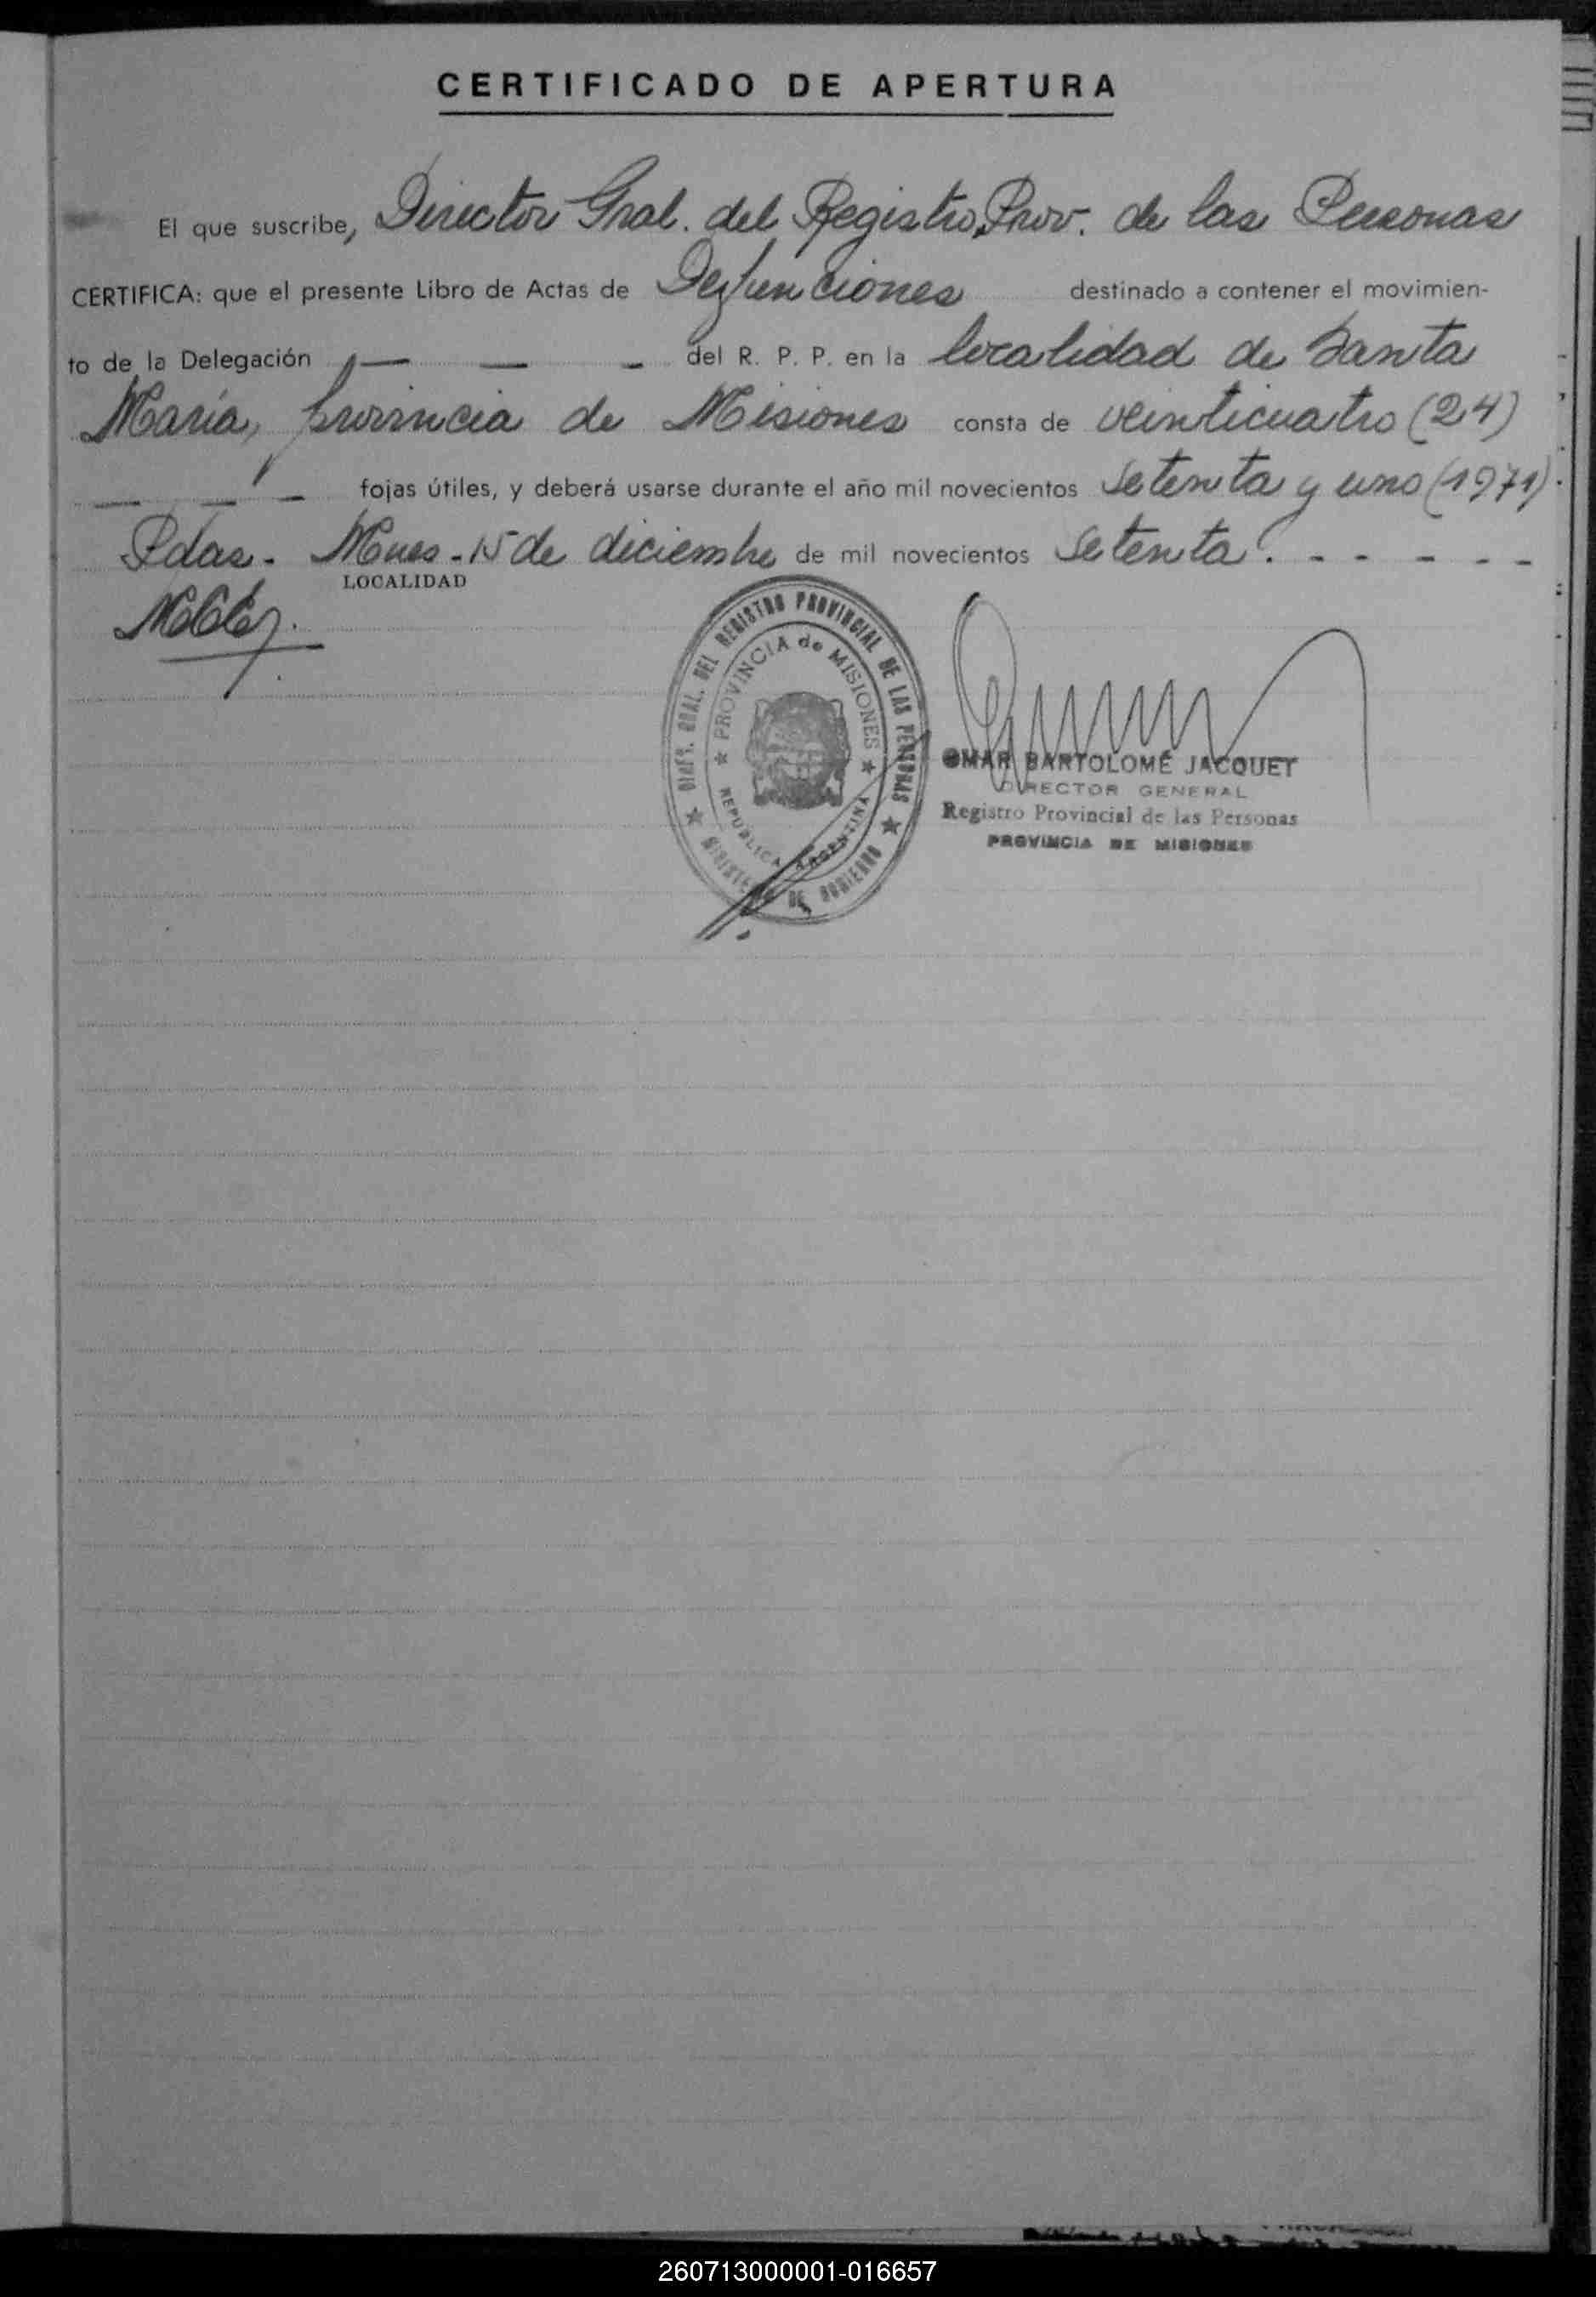 CERTIFICADO DE APERTURA
El que suscribe, Director Gral. del Registro Prov. de las Personas
CERTIFICA: que el presente Libro de Actas de Defunciones destinado a contener el movimien-
to de la Delegación — — — del R. P. P. en la localidad de Santa
María, provincia de Misiones consta de veinticuatro (24)
— — — fojas útiles, y deberá usarse durante el año mil novecientos setenta y uno (1971).
Pdas. Mnes - 15 de diciembre de mil novecientos setenta. - - - - - -
LOCALIDAD
DIREC. GRAL. DEL REGISTRO PROVINCIAL DE LAS PERSONAS
★ PROVINCIA de MISIONES ★
REPUBLICA ARGENTINA
★ MINISTERIO DE GOBIERNO ★
OMAR BARTOLOMÉ JACQUET
DIRECTOR GENERAL
Registro Provincial de las Personas
PROVINCIA DE MISIONES
260713000001-016657